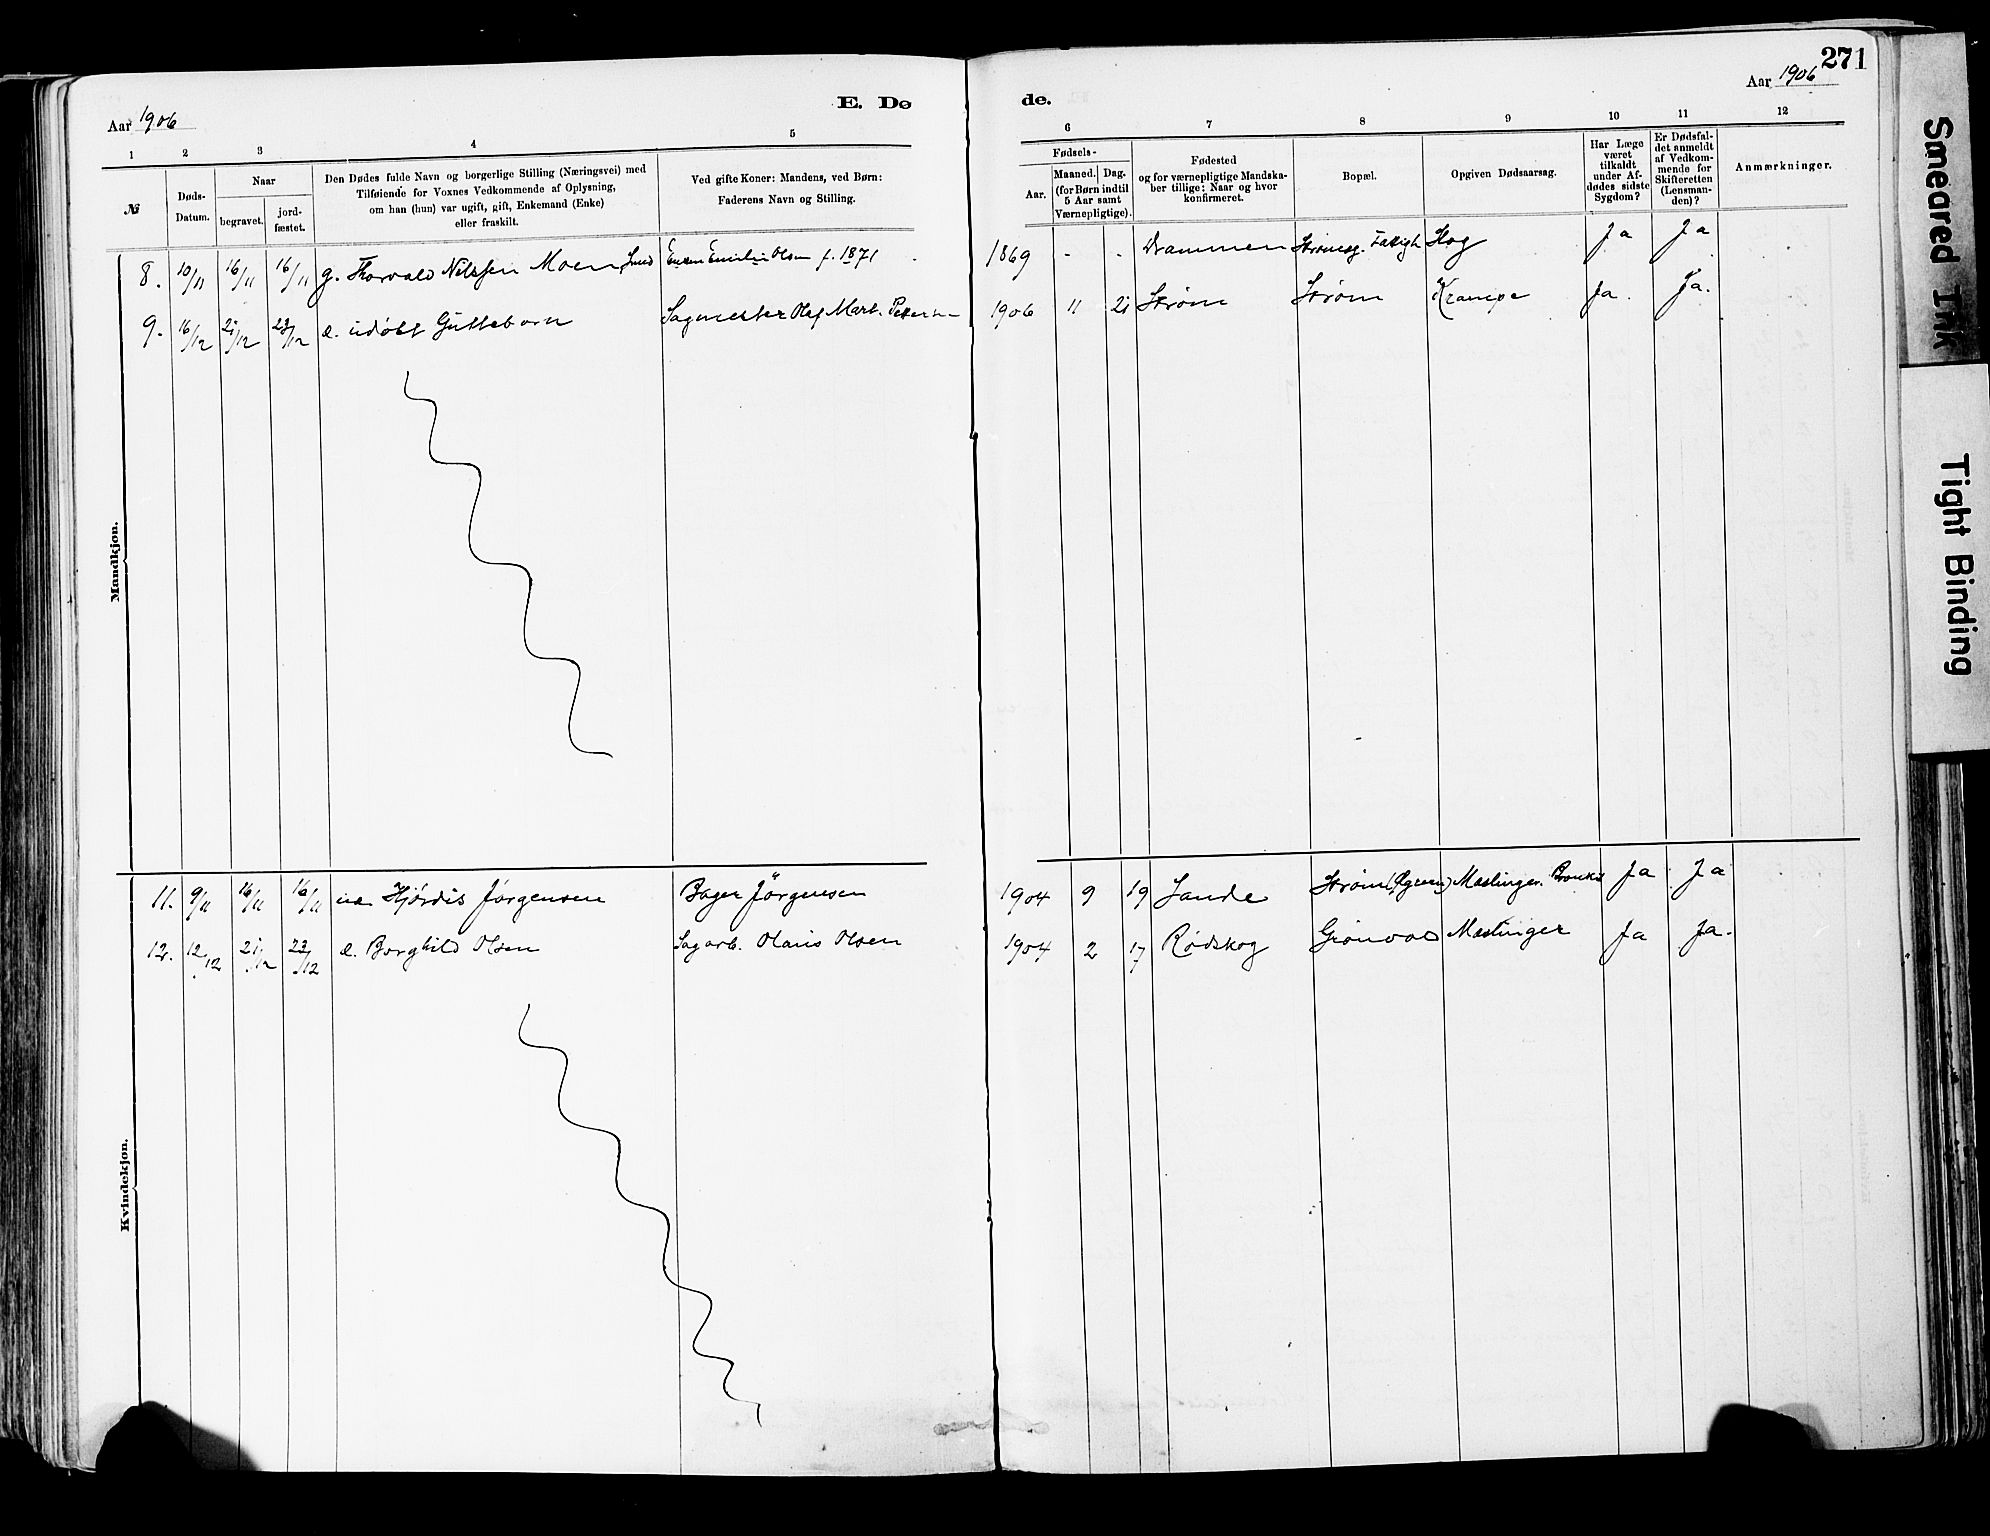 271
Aar 1906
E. Dø
de.
Aar 1906
1 2 3 4 5
6 7 8 9 10 11 12
№
Døds-
Datum.
Naar
begravet.
jord-
fæstet.
Den Dødes fulde Navn og borgerlige Stilling (Næringsvei) med
Tilføiende for Voxnes Vedkommende af Oplysning,
om han (hun) var ugift, gift, Enkemand (Enke)
eller fraskilt.
Ved gifte Koner: Mandens, ved Børn:
Faderens Navn og Stilling.
Fødsels-
Aar.
Maaned.
Dag.
(for Børn indtil
5 Aar samt
Værnepligtige).
Fødested
og for værnepligtige Mandska-
ber tillige: Naar og hvor
konfirmeret.
Bopæl.
Opgiven Dødsaarsag.
Har Læge
været
tilkaldt
under Af-
dødes sidste
Sygdom?
Er Dødsfal-
det anmeldt
af Vedkom-
mende for
Skifteretten
(Lensman-
den)?
Anmærkninger.
Mandkjøn.
8. 10/11 16/11 16/11 g. Thorvald Nilssen Moen, Smed Enken Emilie Olsen f. 1871 1869 - - Drammen Slag Ja Ja
9. 16/12 21/12 23/12 e. udøbt Guttebarn Sagmester Olaf Mart. Petersen 1906 11 21 Strøm Strøm Krampe Ja. Ja.
Kvindekjøn.
11. 9/11 16/11 16/11 ue Hjørdis Jørgensen Bager Jörgensen 1904 9 19 Sande Strøm Mæslinger. Ja Ja
12. 12/12 21/12 23/12 e. Borghild Olsen Sagarb. Olaus Olsen 1904 2 17 Rødskog Grønvold Mæslinger Ja Ja.
Smeared Ink
Tight Binding